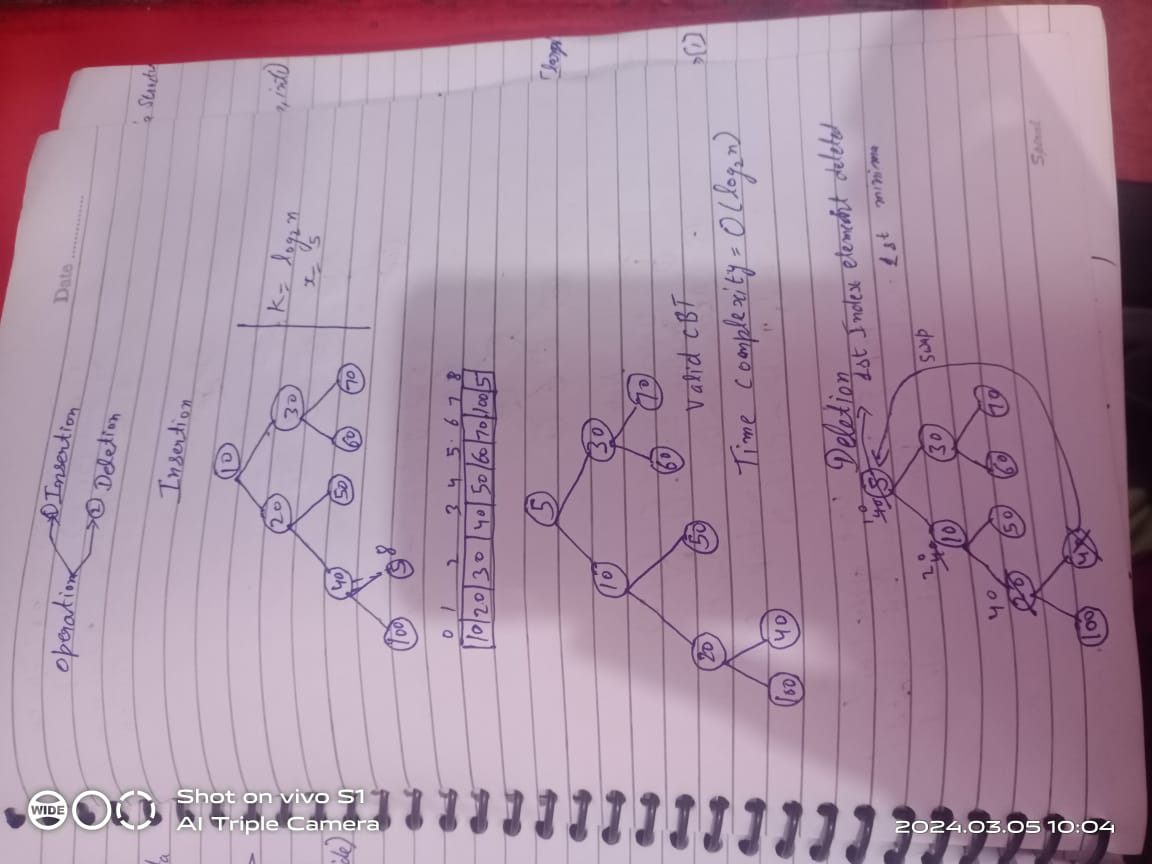 Date ..............
operation → ① Insertion
→ ② Deletion
Insertion
10
20 30
40 50 60 70
100 5 8
K = log₂n
x = 5
0 1 2 3 4 5 6 7 8
10 20 30 40 50 60 70 100 5
5
10 30
20 50 60 70
100 40
Valid CBT
Time complexity = O(log₂n)
Deletion
→ 1st Index element deleted
1st minima
swap
10 40 5
20 40 10 30
40 20 50 60 70
100 40
Shot on vivo S1
AI Triple Camera
WIDE
2024.03.05 10:04